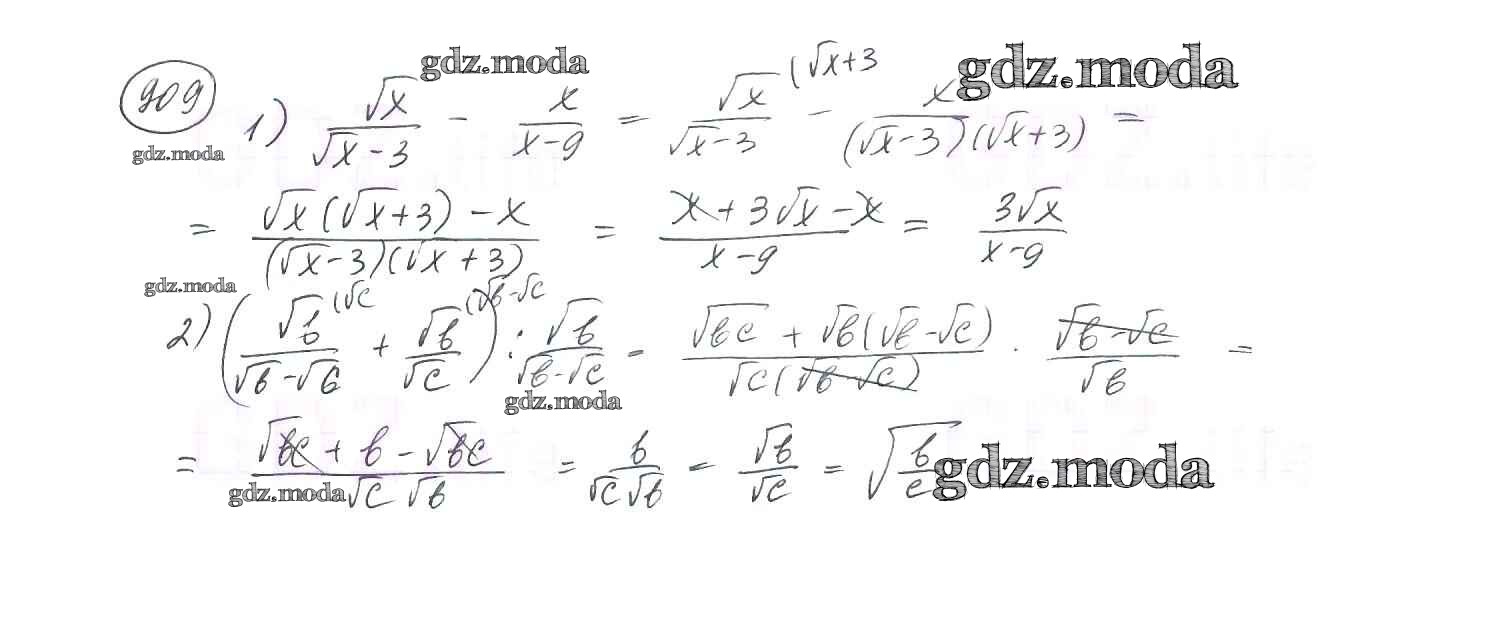 909 gdz.moda gdz.moda
gdz.moda 1) √x/(√x-3) - x/(x-9) = √x/(√x-3) (√x+3 - x/((√x-3)(√x+3)) =
= (√x(√x+3)-x)/((√x-3)(√x+3)) = (x+3√x-x)/(x-9) = 3√x/(x-9)
gdz.moda
2) (√b/(√b-√c) (√c + √b/√c (√b-√c) : √b/(√b-√c) = (√bc+√b(√b-√c))/(√c(√b-√c)) · (√b-√c)/√b =
gdz.moda
= (√bc+b-√bc)/(√c√b) = b/(√c√b) = √b/√c = √(b/c) gdz.moda
gdz.moda